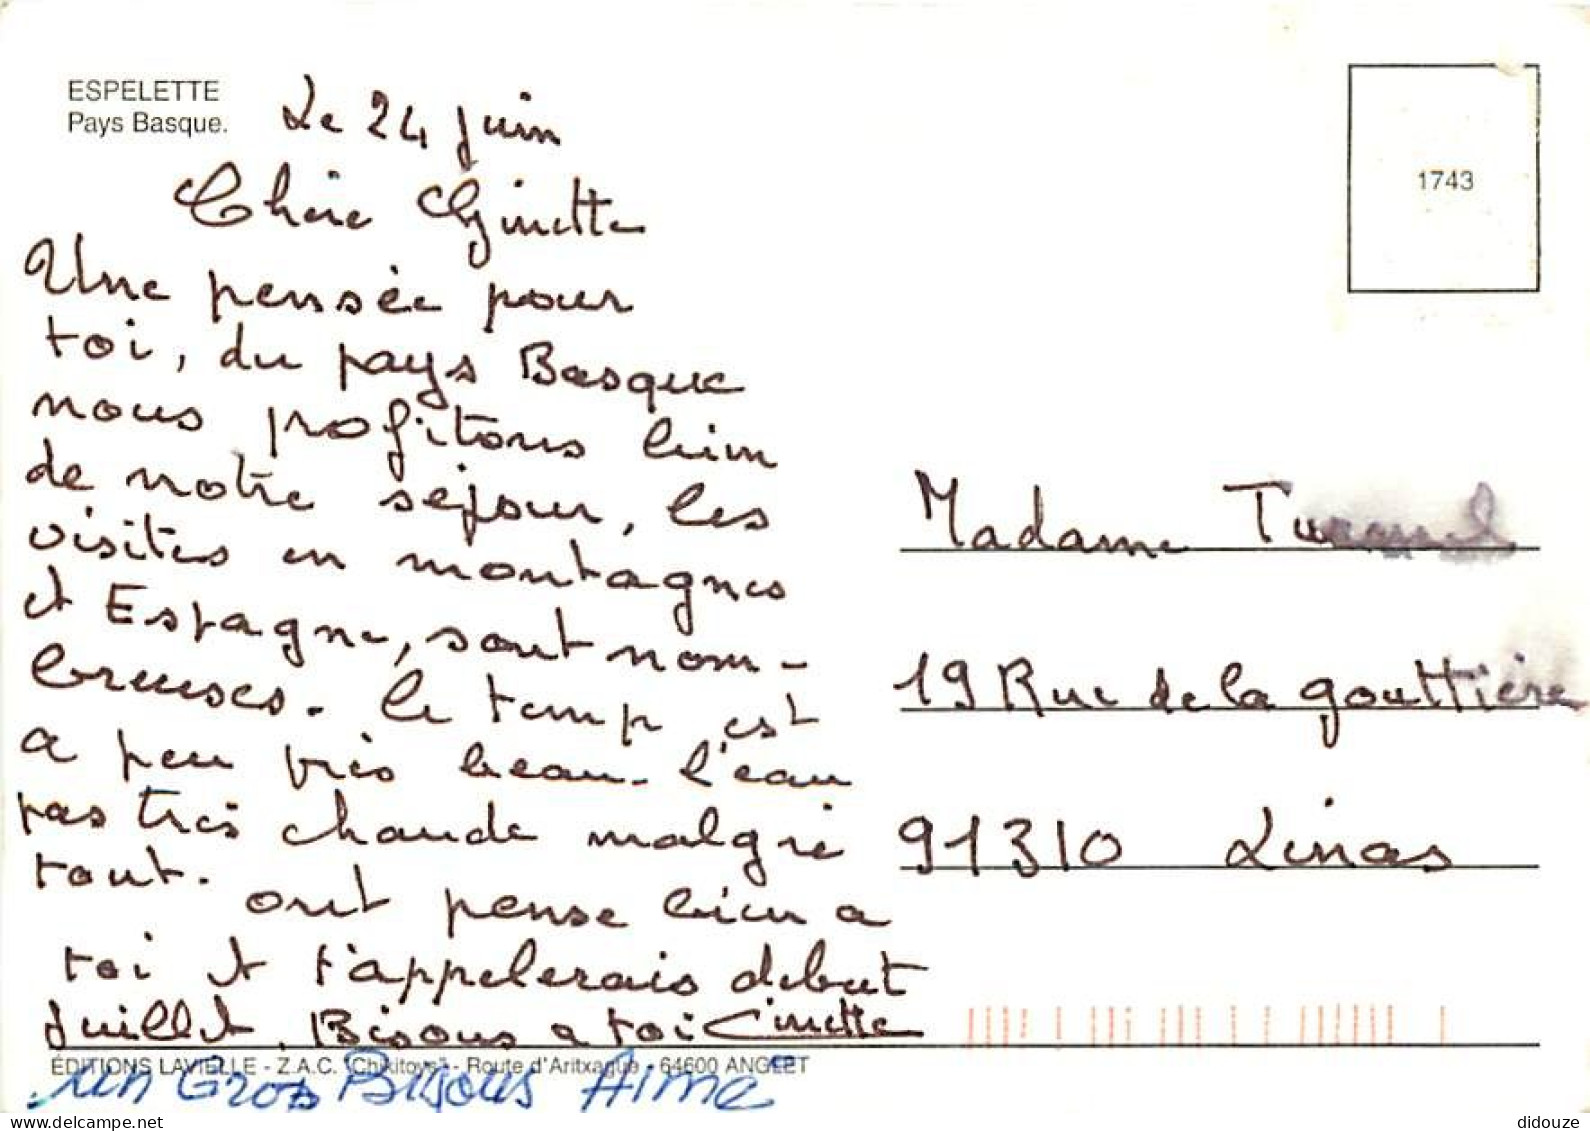 ESPELETTE
Pays Basque.
Le 24 juin
Chère Ginette
Une pensée pour
toi, du pays Basque
nous profitons bien
de notre séjour, les
visites en montagnes
et Espagne, sont nom-
breuses. le temp est
a peu près beau. l'eau
pas très chaude malgré
tout.
ont pense bien a
toi et t'appelerais debut
Juillet. Bisous a toi Ginette
un Gros Bisous Aimé
ÉDITIONS LAVIELLE - Z.A.C. "Chikitoys" - Route d'Aritxague - 64600 ANGLET
1743
Madame
19 Rue de la gouttière
91310 Linas
delcampe.net
didouze